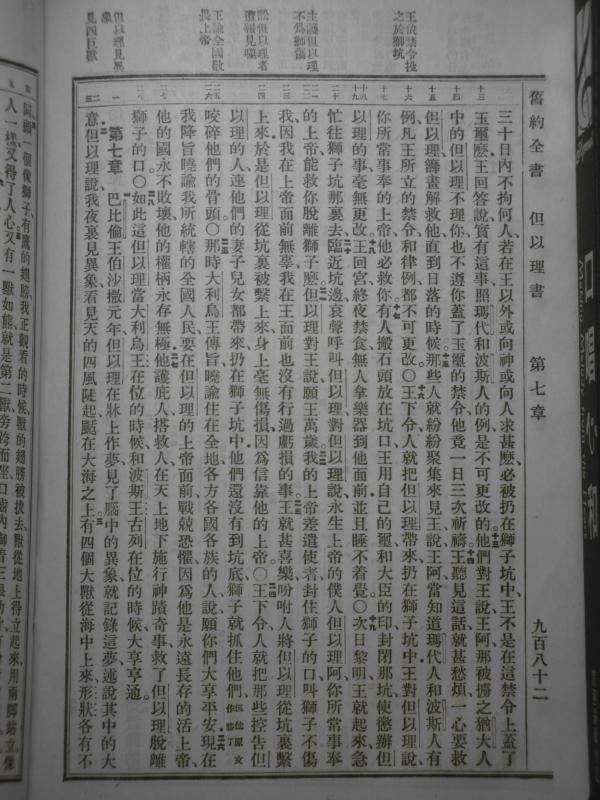 舊約全書 但以理書 第七章 九百八十二
三十日內不拘何人若在王以外或向神或向人求甚麽必被扔在獅子坑中王不是在這禁令上蓋了
玉璽麽王回答說實有這事照瑪代和波斯人的例是不可更改的他們對王說王阿那被擄之猶大人
中的但以理不理你也不遵你蓋了玉璽的禁令他竟一日三次祈禱王聽見這話就甚愁煩一心要救
但以理籌畫解救他直到日落的時候那些人就紛紛聚集來見王說王阿當知道瑪代人和波斯人有
例凡王所立的禁令和律例都不可更改〇王下令人就把但以理帶來扔在獅子坑中王對但以理說
你所常事奉的上帝他必救你有人搬石頭放在坑口王用自己的璽和大臣的印封閉那坑使懲辦但
以理的事毫無更改王回宮終夜禁食無人拿樂器到他面前並且睡不着覺〇次日黎明王就起來急
忙往獅子坑那裏去臨近坑邊哀聲呼叫但以理對但以理說永生上帝的僕人但以理阿你所常事奉
的上帝能救你脫離獅子麽但以理對王說願王萬歲我的上帝差遣使者封住獅子的口叫獅子不傷
我因我在上帝面前無辜我在王面前也沒有行過虧損的事王就甚喜樂吩咐人將但以理從坑裏繫
上來於是但以理從坑裏被繫上來身上毫無傷損因爲信靠他的上帝〇王下令人就把那些控告但
以理的人連他們的妻子兒女都帶來扔在獅子坑中他們還沒有到坑底獅子就抓住他們
咬碎他們的骨頭〇那時大利烏王傳旨曉諭住在全地各方各國各族的人說願你們大享平安現在
我降旨曉諭我所統轄的全國人民要在但以理的上帝面前戰兢恐懼因爲他是永遠長存的活上帝
他的國永不敗壞他的權柄永存無極他護庇人搭救人在天上地下施行神蹟奇事救了但以理脫離
獅子的口〇如此這但以理當大利烏王在位的時候和波斯王古列在位的時候大享亨通
第七章 巴比倫王伯沙撒元年但以理在牀上作夢見了腦中的異象就記錄這夢述說其中的大
意但以理說我夜裏見異象看見天的四風陡起颳在大海之上有四個大獸從海中上來形狀各有不
同頭一個像獅子有鷹的翅膀我正觀看的時候獸的翅膀被拔去獸從地上得立起來用兩脚站立像
人一樣又得了人心又有一獸如熊就是第二獸旁跨而坐口齒內啣着三根肋
王依禁令投
之於獅坑
主護但以理
不爲獅傷
訟但以理者
遭報見噬
王諭全國敬
畏上帝
但以理見異
象
見四巨獸